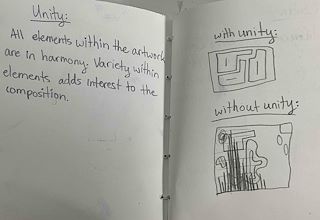 Unity:
All elements within the artwork
are in harmony. Variety within
elements adds interest to the
composition.
with unity:
without unity: